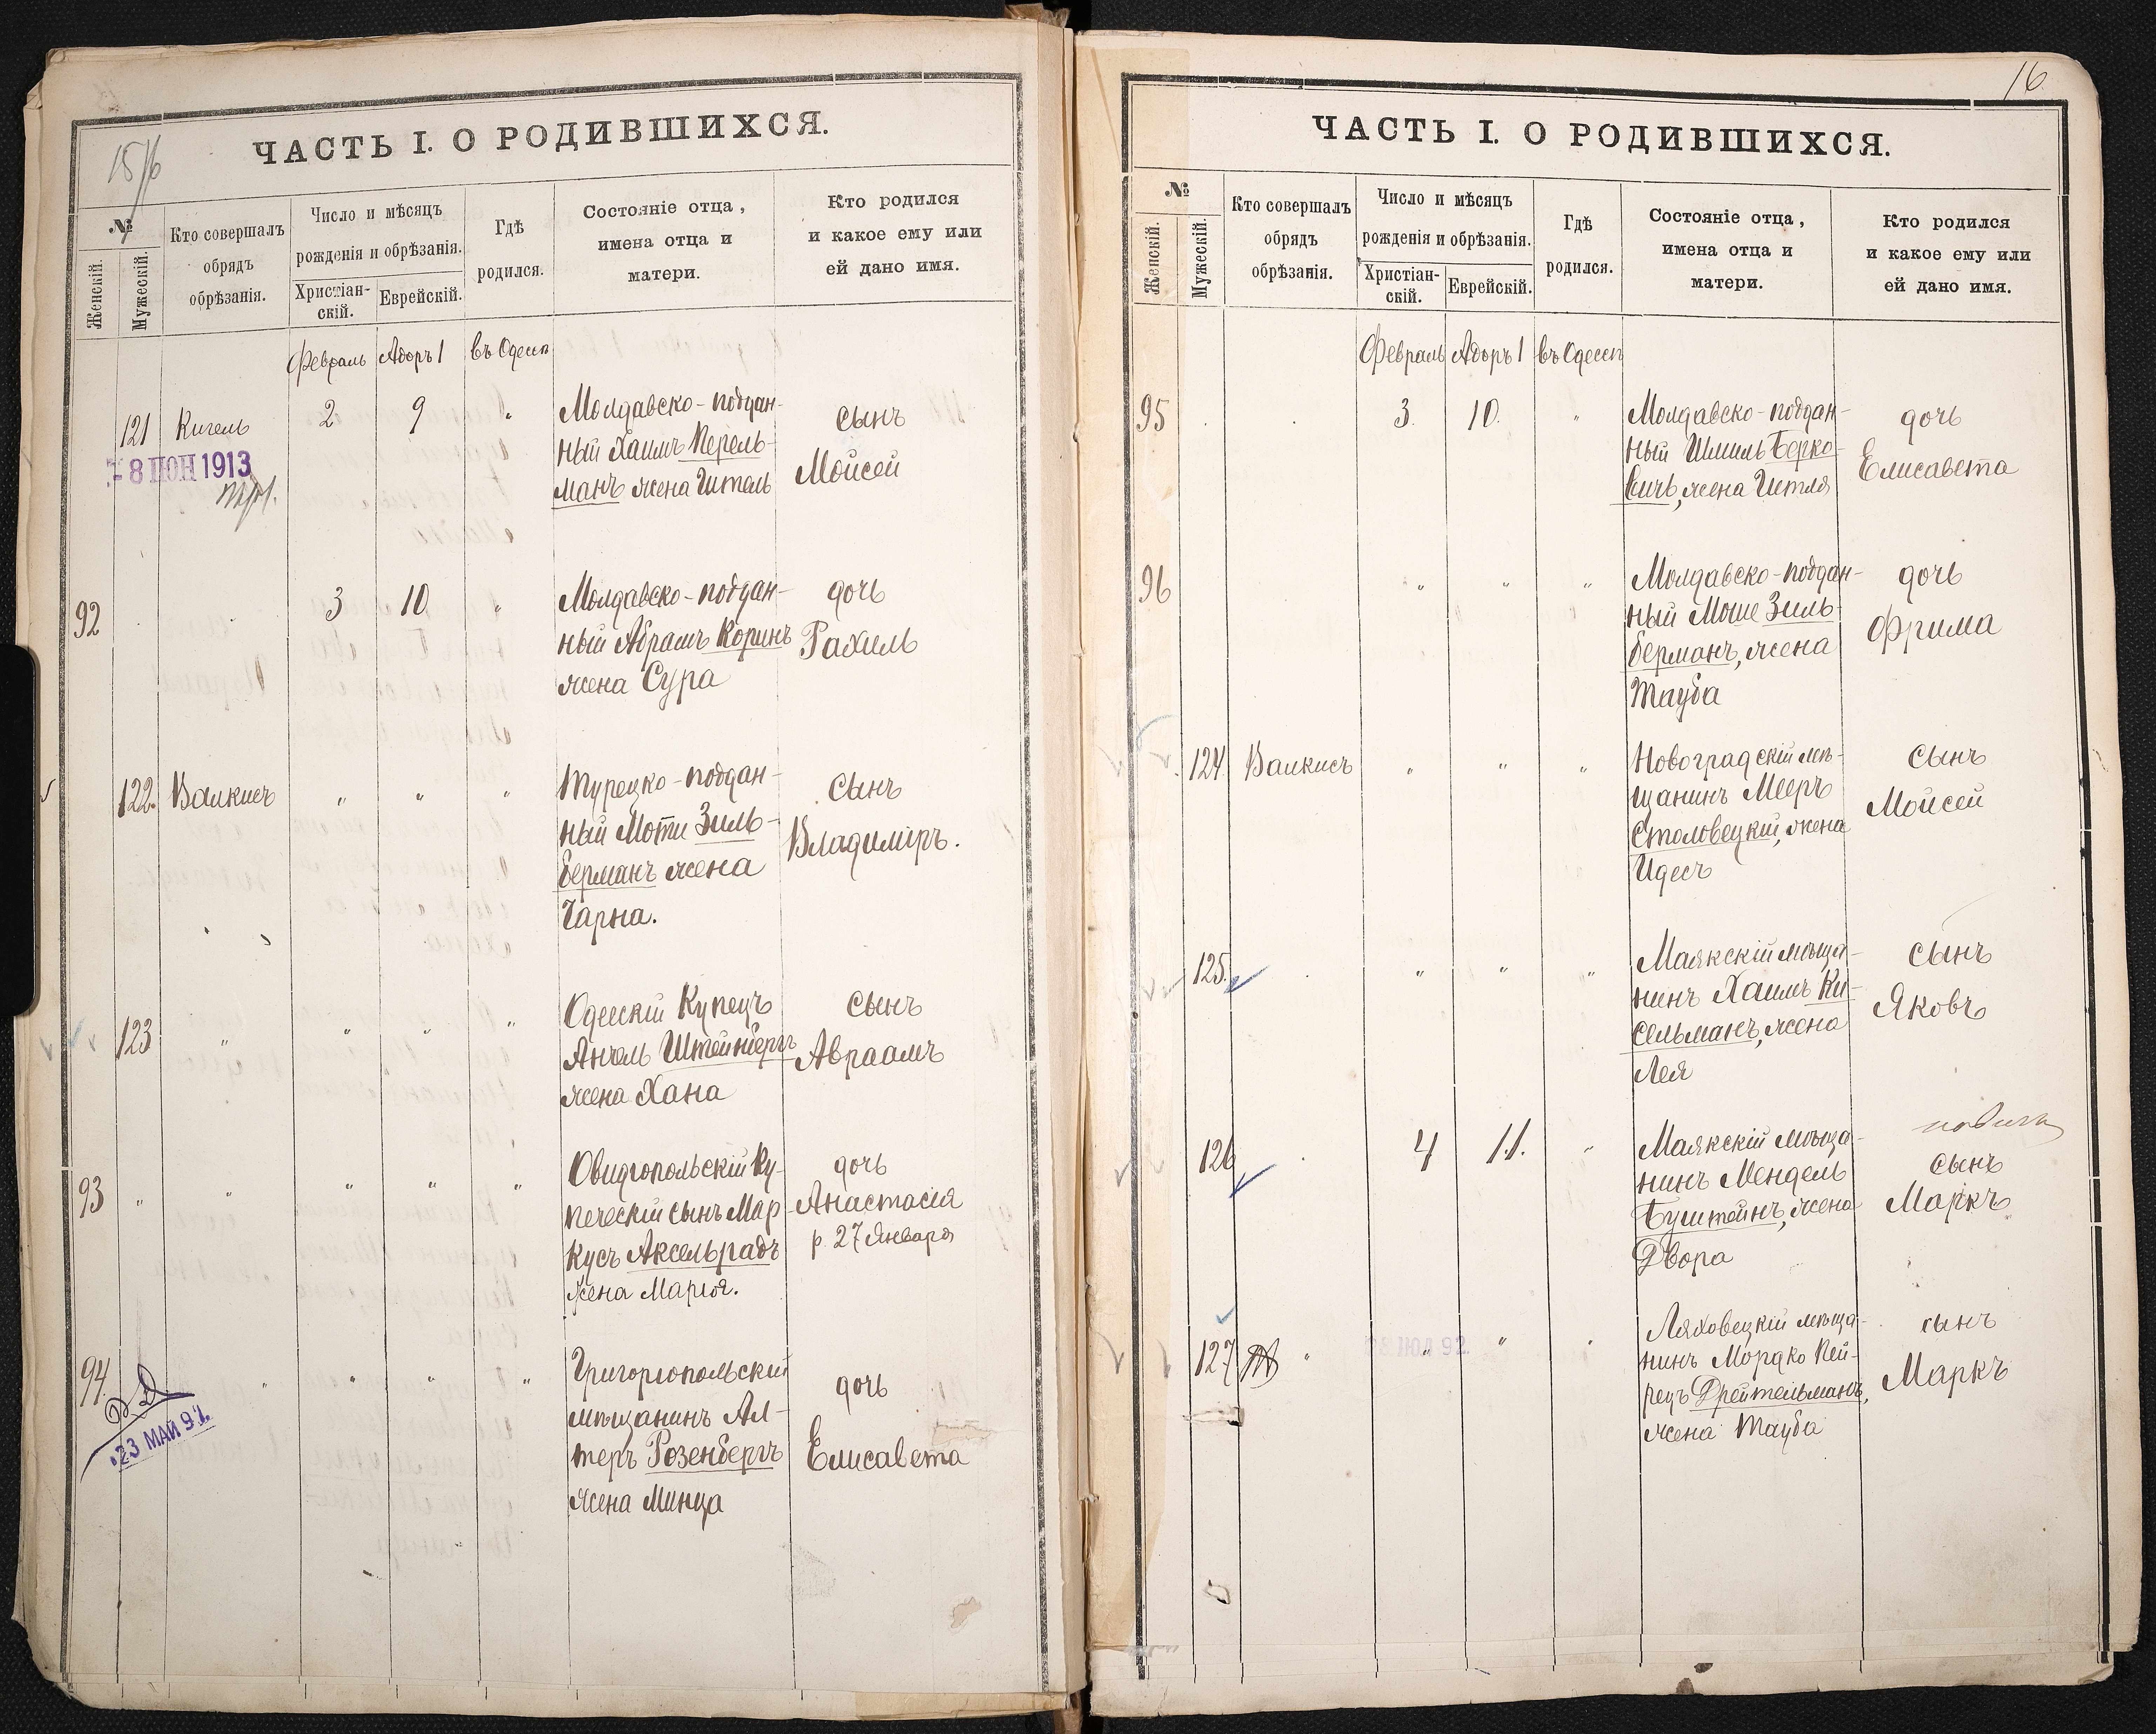 15/16
ЧАСТЬ I. О РОДИВШИХСЯ.
№
Женскій.
Мужескій.
Кто совершалъ
обрядъ
обрѣзанія.
Число и мѣсяцъ
рожденія и обрѣзанія.
Христіан-
скій.
Еврейскій.
Гдѣ
родился.
Состояніе отца,
имена отца и
матери.
Кто родился
и какое ему или
ей дано имя.
Февраль Адоръ 1 въ Одессѣ
121 Кигель 2 9 " Молдавско-поддан-
ный Хаимъ Перель-
манъ жена Гитель
сынъ
Мойсей
8 ІЮН 1913
92 3 10 " Молдавско-поддан-
ный Абрамъ Коринъ
жена Сура
дочь
Рахиль
122. Валкисъ " " " Турецко-поддан-
ный Моти Зиль-
берманъ жена
Чарна.
сынъ
Владиміръ.
123 " " " " Одесскій Купецъ
Анчель Штейнбергъ
жена Хана
сынъ
Авраамъ
93 " " " " " Овидіопольскій Ку-
печескій сынъ Мар-
кусъ Аксельрадъ
жена Марія.
дочь
Анастасія
р. 27 Января
94 " " " " Григоріопольскій
мѣщанинъ Ал-
теръ Розенбергъ
жена Минца
дочь
Елисавета
23 МАЙ 97.
16
ЧАСТЬ I. О РОДИВШИХСЯ.
№
Женскій.
Мужескій.
Кто совершалъ
обрядъ
обрѣзанія.
Число и мѣсяцъ
рожденія и обрѣзанія.
Христіан-
скій.
Еврейскій.
Гдѣ
родился.
Состояніе отца,
имена отца и
матери.
Кто родился
и какое ему или
ей дано имя.
Февраль Адоръ 1 въ Одессѣ
95 3. 10. " Молдавско-поддан-
ный Шмиль Берко-
вичъ, жена Гитля
дочь
Елисавета
96 " " " Молдавско-поддан-
ный Моше Зиль-
берманъ, жена
Тауба
дочь
Фрима
124 Валкисъ " " " Новоградскій мѣ-
щанинъ Мееръ
Столовецкій, жена
Идесъ
сынъ
Мойсей
125. " " " Маякскій мѣща-
нинъ Хаимъ Ки-
сельманъ, жена
Лея
сынъ
Яковъ
126 4 11. " Маякскій мѣща-
нинъ Мендель
Бумштейнъ, жена
Двора
сынъ
Маркъ
127 " " " " Ляховецкій мѣща-
нинъ Мордко Пей-
рецъ Дрейтельманъ,
жена Тауба
сынъ
Маркъ
ІЮЛ 92